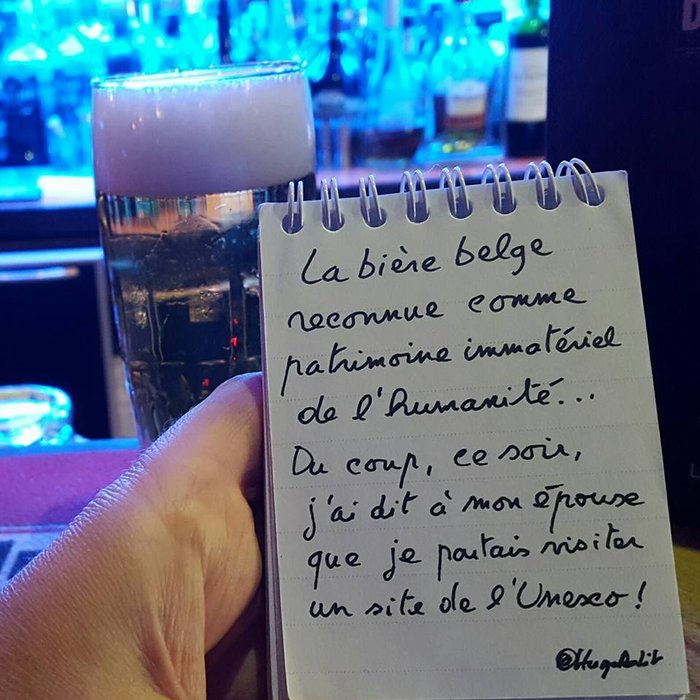 La bière belge
reconnue comme
patrimoine immatériel
de l'humanité...
Du coup, ce soir,
j'ai dit à mon épouse
que je partais visiter
un site de l'Unesco !